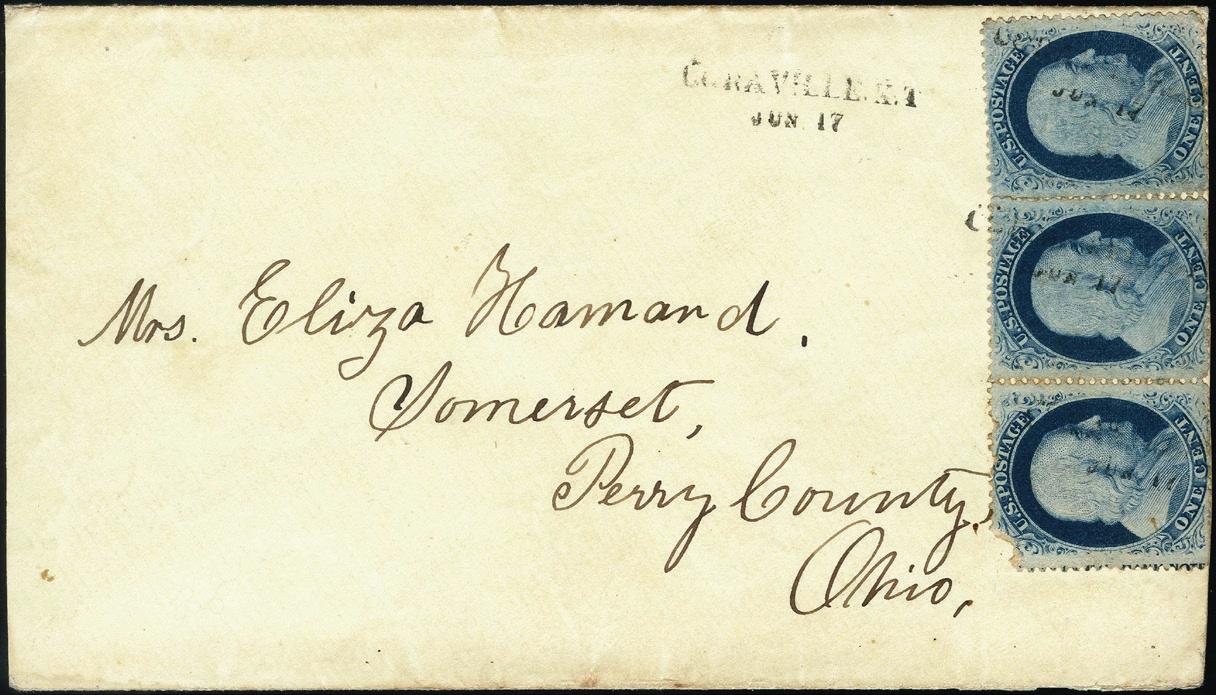 CORAVILLE.K.T
JUN 17
U.S. POSTAGE
ONE CENT
JUN 17
U.S. POSTAGE
ONE CENT
JUN 17
U.S. POSTAGE
ONE CENT
JUN 17
Mrs. Eliza Hamand.
Somerset,
Perry County,
Ohio,